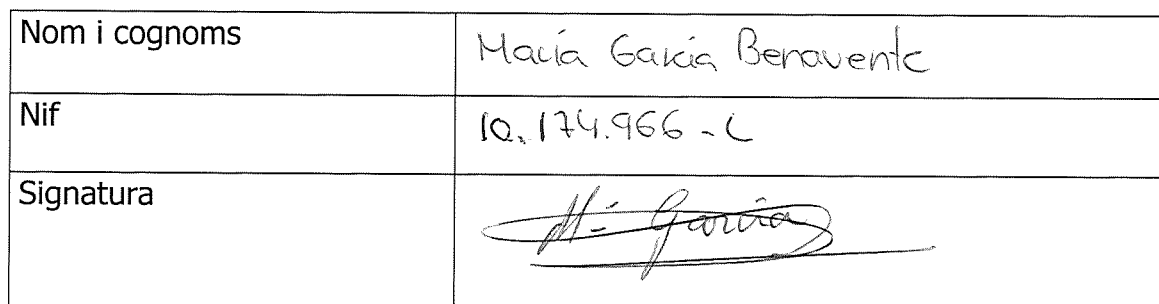 Nom i cognoms
María García Benavente
Nif
10.174.966-L
Signatura
Mª García